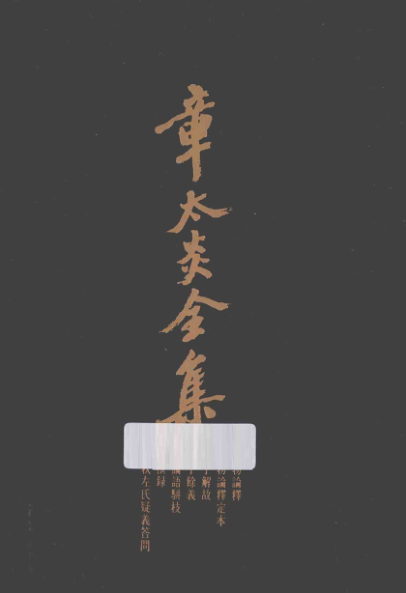 章太炎全集
物論釋
物論釋定本
子解故
子餘義
論語駢枝
録
秋左氏疑義答問